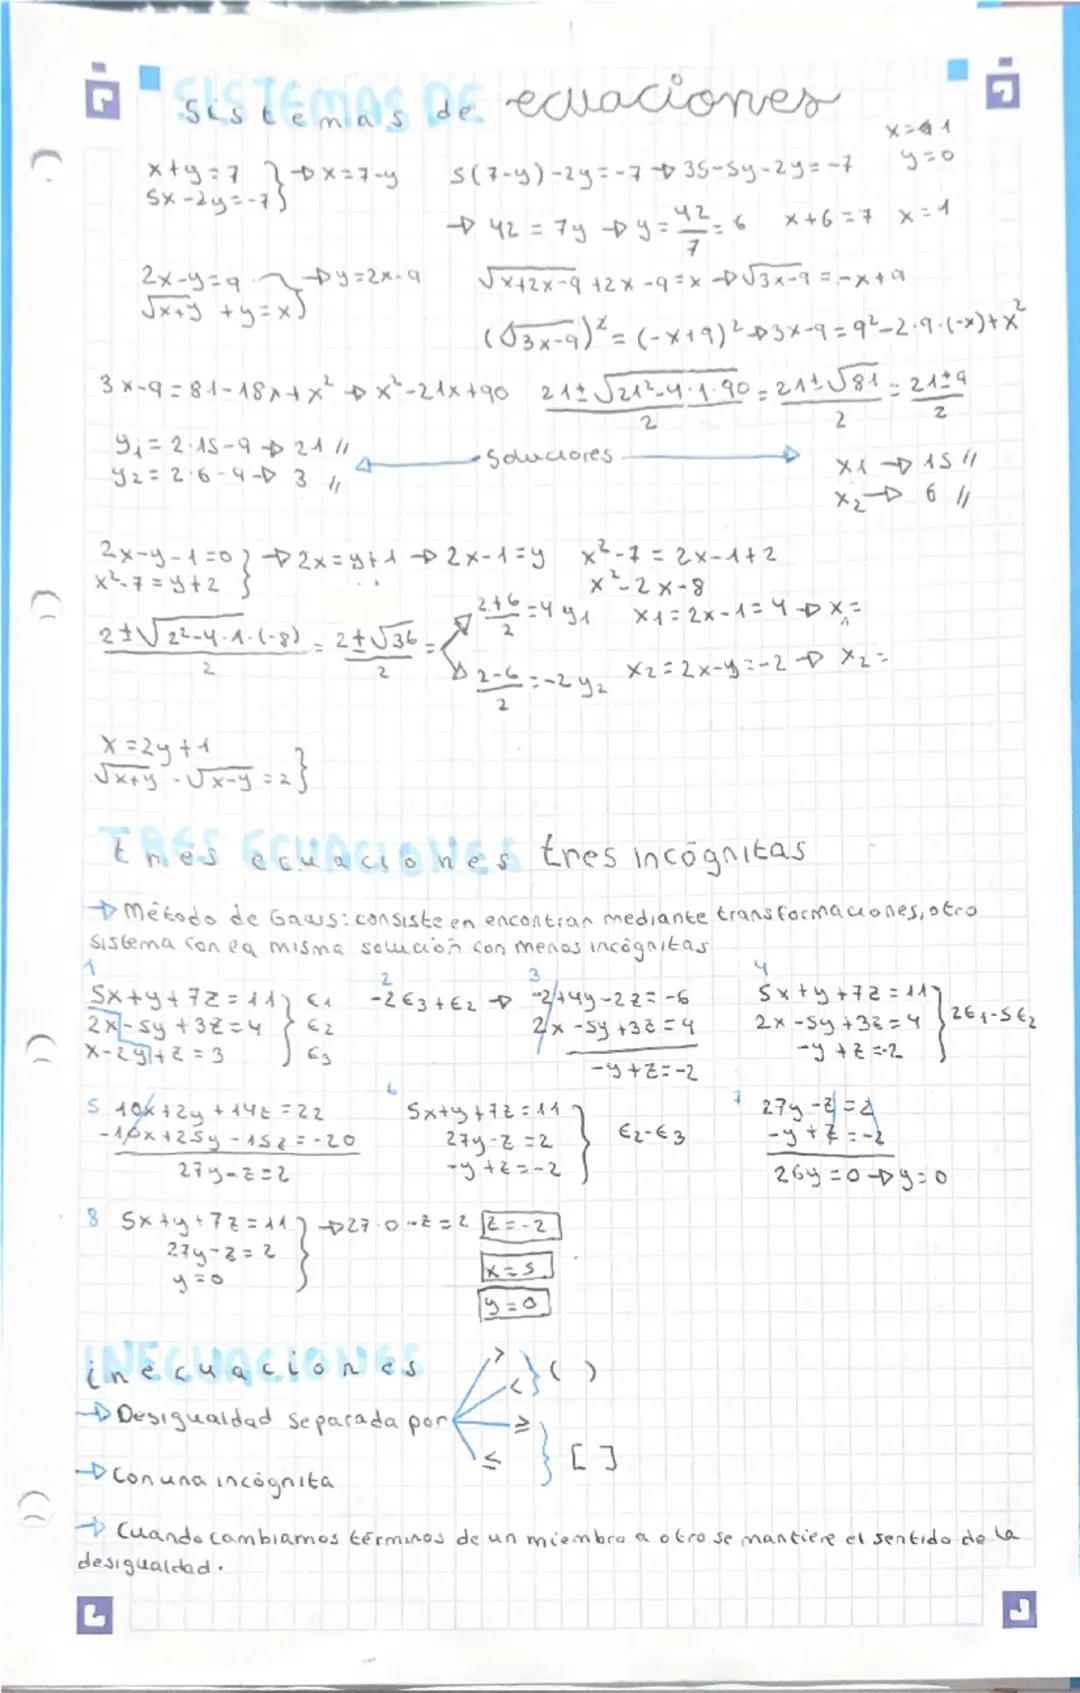 SISTEMAS DE
sistemas de ecuaciones
x=1
y=0
x+y=7 } → x=7-y   5(7-y)-2y=-7 → 35-5y-2y=-7
5x-2y=-7
→ 42=7y → y=42/7=6   x+6=7   x=1
2x-y=9 } → y=2x-9   √x+2x-9 +2x-9=x → √3x-9 =-x+9
√x+y +y=x
(√3x-9)²=(-x+9)² → 3x-9=9²-2·9·(-x)+x²
3x-9=81-18x+x² → x²-21x+90   21±√21²-4·1·90/2 = 21±√81/2 = 21±9/2
y₁=2·15-9 → 21 //
y₂=2·6-9 → 3 //
soluciones
x1 → 15 //
x₂ → 6 //
2x-y-1=0 } → 2x=y+1 → 2x-1=y   x²-7=2x-1+2
x²-7=y+2   x²-2x-8
2±√2²-4·1·(-8)/2 = 2±√36/2 =
2+6/2=4 y₁   x1=2x-1=4 → x₁=
2-6/2=-2 y₂   x2=2x-y=-2 → x₂=
x=2y+1
√x+y -√x-y =2 }
TRES ECUACIONES
tres ecuaciones tres incógnitas
→ Método de Gauss: consiste en encontrar mediante transformaciones, otro
sistema con la misma solución con menos incógnitas
1
5x+y+7z=11 } E1
2x-5y+3z=4 E2
x-2y+z=3 E3
2
-2E3+E2 →
3
-2+4y-2z=-6
2x-5y+3z=4
-y+z=-2
4
5x+y+7z=11
2x-5y+3z=4 } 2E1-5E2
-y+z=-2
5 10x+2y+14z=22
-10x+25y-15z=-20
27y-z=2
6
5x+y+7z=11
27y-z=2 } E2-E3
-y+z=-2
7 27y-z=2
-y+z=-2
26y=0 → y=0
8 5x+y+7z=11 } → 27·0-z=2 z=-2
27y-z=2
y=0
x=5
y=0
INECUACIONES
inecuaciones
→ Desigualdad separada por
>
< } ( )
≥
≤ } [ ]
→ Con una incógnita
→ Cuando cambiamos términos de un miembro a otro se mantiene el sentido de la
desigualdad.